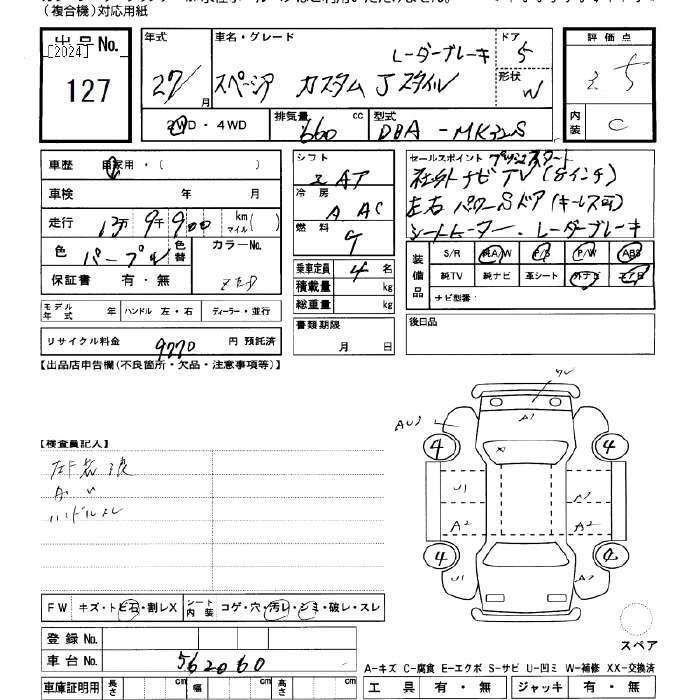 (複合機)対応用紙
出品No.
[2024]
127
年式
27/
月
車名・グレード
レーダーブレーキ
スペーシア カスタム Jスタイル
ドア
5
形状
W
2WD・4WD
排気量
660
cc
型式
DBA-MK32S
評価点
3.5
内装
C
車歴 自家用・( )
車検 年 月
走行 13万 9千 900 km マイル( )
色 パープル 色替
カラーNo.
ZED
保証書 有・無
モデル年式 年 ハンドル 左・右 ディーラー・並行
リサイクル料金 9770 円 預託済
シフト
冷房
A AC
燃料
乗車定員 4 名
積載量 kg
総重量 kg
書類期限
月 日
セールスポイント プッシュスタート
社外ナビTV(8インチ)
左右パワーSドア(キーレス可)
シートヒーター. レーダーブレーキ
装備品
S/R 純A/W P/S P/W ABS
純TV 純ナビ 革シート 外ナビ エアB
ナビ型番:
後日品
【出品店申告欄(不良箇所・欠品・注意事項等)】
【検査員記入】
ハンドルスレ
FW キズ・トビ石・割レX
シート内装 コゲ・穴・汚レ・シミ・破レ・スレ
登録No.
車台No. 562060
車庫証明用 長さ cm 幅 cm 高さ cm
AU3
A1
4
4
U1
A2
A2
A2
4
U1
A2
スペア
A-キズ C-腐食 E-エクボ S-サビ U-凹ミ W-補修 XX-交換済
工具 有・無 ジャッキ 有・無